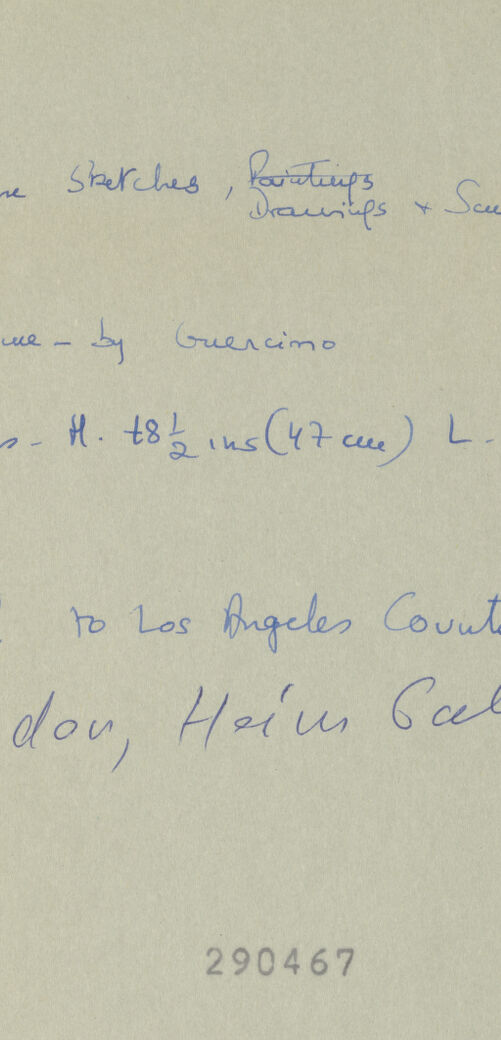 Sketches, Paintings
Drawings +
by Guercino
H. 18 1/2 ins (47 cm) L -
to Los Angeles County
don, Heim Gal
290467